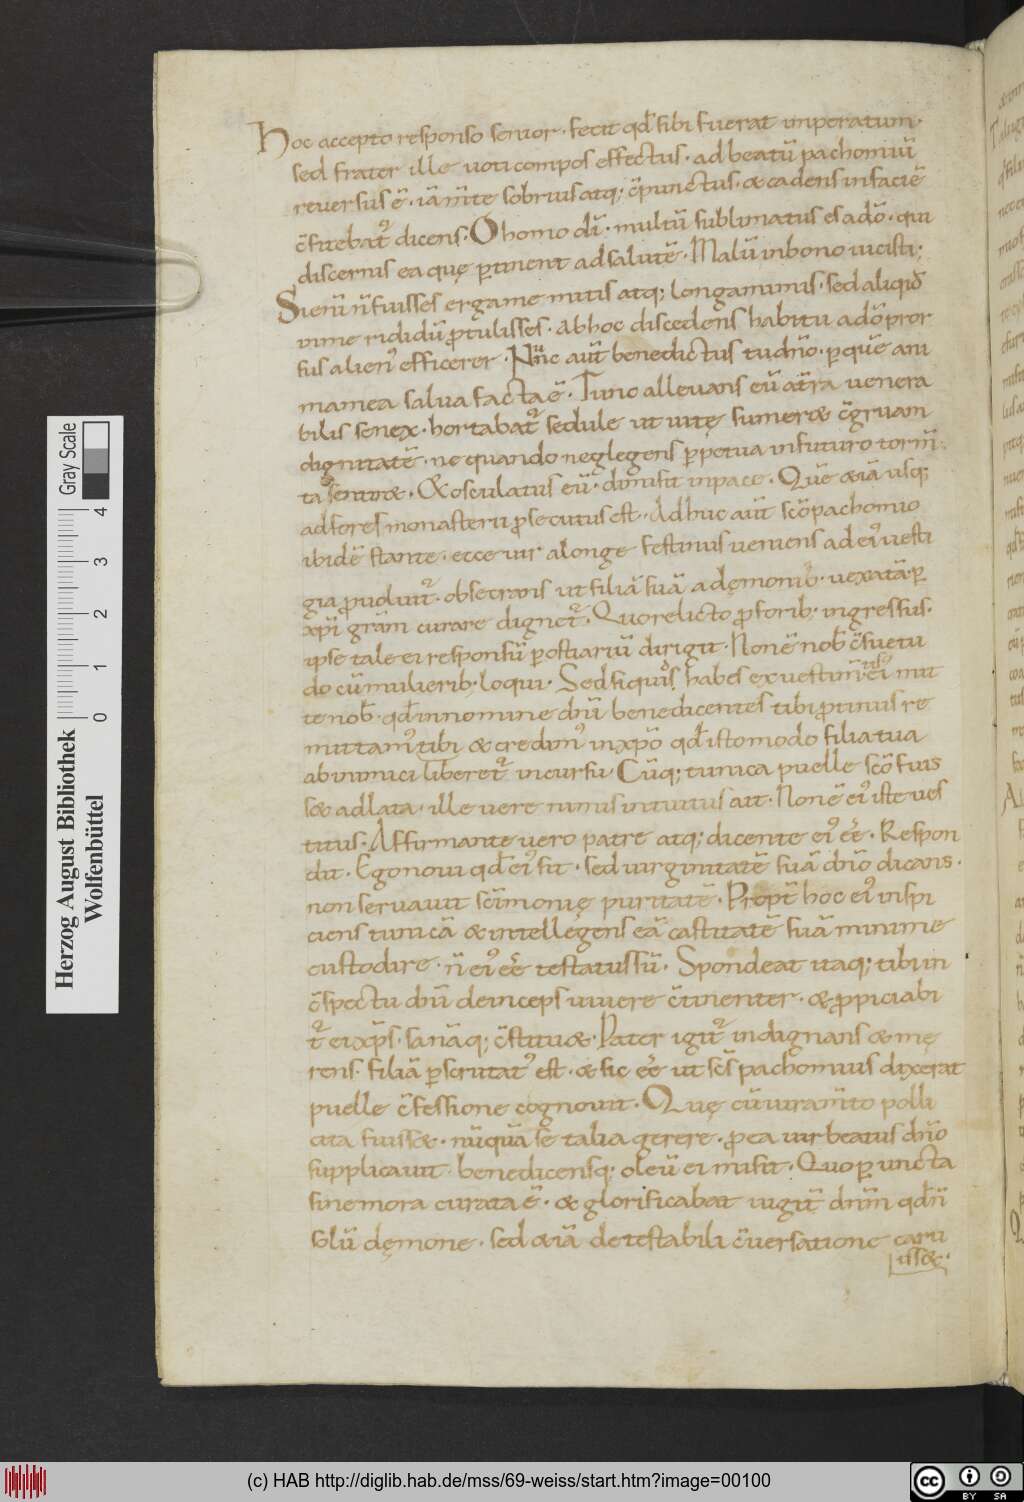 Hoc accepto responso senior · fecit qd̄ sibi fuerat imperatum ·
sed frater ille uoti compos effectus · ad beatū pachomiū
reuersus ē · iā m̄te sobrius atq; cōpunctus · & cadens in faciē
c̄fitebat᷑ dicens · O homo dī · multū sublimatus es a dō · qui
discernis ea quę ꝑtinent ad salutē · Malū in bono uicisti ;
Si enī n̄ fuisses erga me mitis atq; longanimis · sed aliquid
in me rigidū ꝓtulisses · ab hoc discedens habitu a dō pror
sus alien᷒ efficerer · Nūc aūt benedictus tu dn̄o · ꝑ quē ani
ma mea salua facta ē · Tunc alleuans eū a t̄ra uenera
bilis senex · hortabat᷑ sedule ut uitę sumer& c̄gruam
dignitatē · ne quando neglegens ꝑpetua in futuro torm̄
ta sentir& · Et osculatus eū · dimisit in pace · Quē &iā usq;
ad fores monasterii ꝓsecutus est · Adhuc aūt sc̄o pachomio
ibidē stante · ecce uir a longe festinus ueniens ad ei᷒ uesti
gia ꝓuoluit᷑ · obsecrans ut filiā suā a dęmonib; uexatā ꝑ
xp̄i grām curare dignet᷑ · Quo relicto ꝓ forib; ingressus ·
ipse tale ei responsū ꝑ ostiariū dirigit · Non ē nob̄ c̄suetu
do cū mulierib; loqui · Sed si quid habes ex uestim̄tis ei᷒ mit
te nob̄ · qd̄ in nomine dn̄i benedicentes tibi ꝓtinus re
mittam᷒ tibi & credim᷒ in xp̄o qd̄ isto modo filia tua
ab inimici liberet᷑ incursu · Cūq; tunica puelle sc̄o fuis
s& adlata · ille uere nimis intuitus ait · Non ē ei᷒ iste ues
titus · Affirmante uero patre atq; dicente ei᷒ eē · Respon
dit · Ego noui qd̄ ei᷒ sit · sed uirginitatē suā dn̄o dicans ·
non seruauit sc̄imonię puritatē · Propt̄ hoc ei᷒ inspi
ciens tunicā & intellegens eā castitatē suā minime
custodire · n̄ ei᷒ eē testatus sū · Spondeat itaq; tibi in
c̄spectu dn̄i deinceps uiuere c̄tinenter · & ꝓpiciabi
t᷑ ei xp̄s · sanāq; c̄stitu& · Pater igit᷑ indignans & mę
rens · filiā ꝑscrutat᷒ est · & sic eē ut sc̄s pachomius dixerat
puelle c̄fessione cognouit · Quę cū iuram̄to polli
cita fuiss& · nūquā se talia gerere · ꝓ ea uir beatus dn̄o
supplicauit · benedicensq; oleū ei misit · Quo ꝑuncta
sine mora curata ē · & glorificabat iugit̄ dn̄m qd̄ n̄
solū dęmone · sed &iā detestabili c̄uersatione caru
iss& ·
Herzog August Bibliothek
Wolfenbüttel
0 1 2 3 4
Gray Scale
(c) HAB http://diglib.hab.de/mss/69-weiss/start.htm?image=00100
cc
BY SA